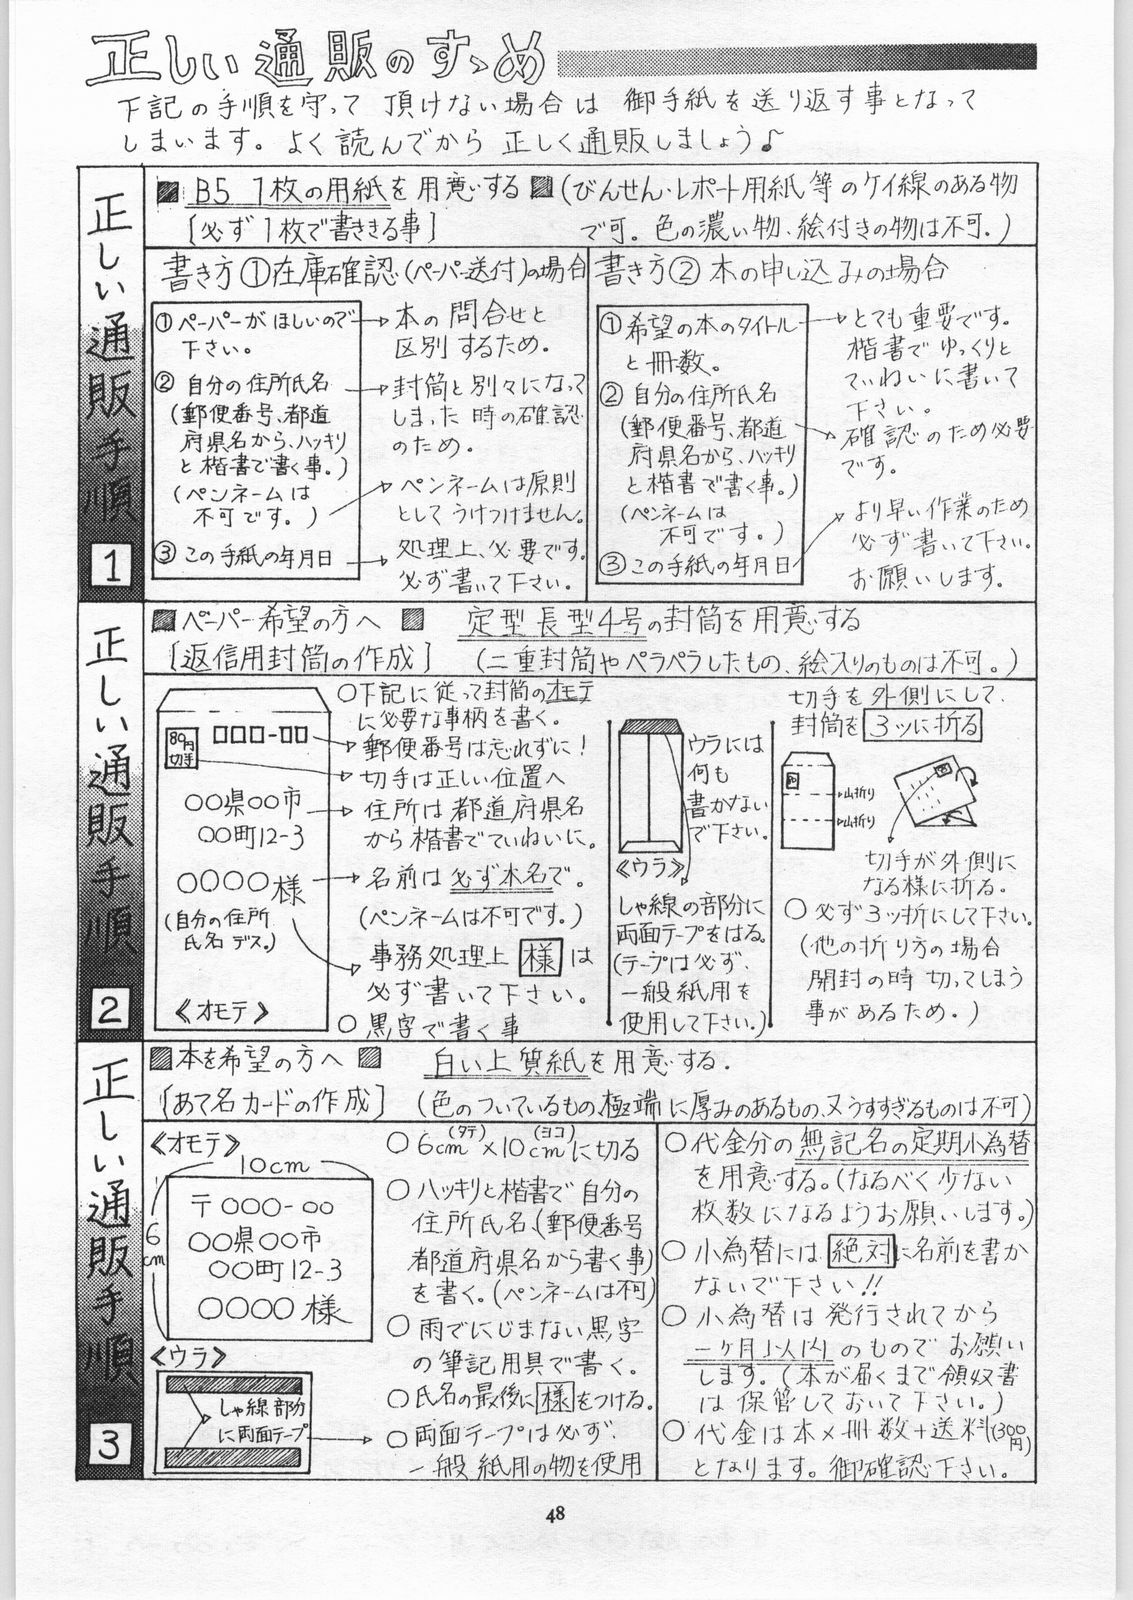 正しい通販のすゝめ
下記の手順を守って 頂けない場合は 御手紙を送り返す事となって
しまいます。よく読んでから 正しく通販しましょう♪
正しい通販手順
1
■ B5 1枚の用紙を用意する ■(びんせん・レポート用紙等のケイ線のある物
[必ず1枚で書ききる事]
で可。色の濃い物、絵付きの物は不可。)
書き方①在庫確認(ペーパー送付)の場合
①ペーパーがほしいので
下さい。
②自分の住所氏名
(郵便番号、都道
府県名から、ハッキリ
と楷書で書く事。)
(ペンネームは
不可です。)
③この手紙の年月日
本の問合せと
区別するため。
封筒と別々になって
しまった時の確認
のため。
ペンネームは原則
としてうけつけません。
処理上、必要です。
必ず書いて下さい。
書き方②本の申し込みの場合
①希望の本のタイトル
と冊数。
②自分の住所氏名
(郵便番号、都道
府県名から、ハッキリ
と楷書で書く事。)
(ペンネームは
不可です。)
③この手紙の年月日
とても重要です。
楷書でゆっくりと
ていねいに書いて
下さい。
確認のため必要
です。
より早い作業のため
必ず書いて下さい。
お願いします。
正しい通販手順
2
■ペーパー希望の方へ ■ 定型長型4号の封筒を用意する
[返信用封筒の作成] (二重封筒やペラペラしたもの、絵入りのものは不可。)
80円
切手
□□□-□□
○○県○○市
○○町12-3
○○○○様
(自分の住所
氏名デス。)
《オモテ》
○下記に従って封筒のオモテ
に必要な事柄を書く。
郵便番号は忘れずに!
切手は正しい位置へ
住所は都道府県名
から楷書でていねいに。
名前は必ず本名で。
(ペンネームは不可です。)
事務処理上 様 は
必ず書いて下さい。
○黒字で書く事
ウラには
何も
書かない
で下さい。
《ウラ》
しゃ線の部分に
両面テープをはる。
(テープは必ず、
一般紙用を
使用して下さい。)
切手を外側にして、
封筒を 3ツに折る
80
山折り
山折り
切手が外側に
なる様に折る。
○必ず3ッ折にして下さい。
(他の折り方の場合
開封の時切ってしまう
事があるため。)
正しい通販手順
3
■本を希望の方へ ■ 白い上質紙を用意する.
[あて名カードの作成] (色のついているもの、極端に厚みのあるもの、又うすすぎるものは不可)
《オモテ》
10cm
6cm
〒○○○-○○
○○県○○市
○○町12-3
○○○○様
《ウラ》
しゃ線部分
に両面テープ
○6cm(タテ)×10cm(ヨコ)に切る
○ハッキリと楷書で自分の
住所氏名(郵便番号
都道府県名から書く事)
を書く。(ペンネームは不可)
○雨でにじまない黒字
の筆記用具で書く。
○氏名の最後に様をつける。
○両面テープは必ず、
一般紙用の物を使用
○代金分の無記名の定期小為替
を用意する。(なるべく少ない
枚数になるようお願いします。)
○小為替には絶対に名前を書か
ないで下さい!!
○小為替は発行されてから
一ヶ月以内のものでお願い
します。(本が届くまで領収書
は保管しておいて下さい。)
○代金は本×冊数+送料(300円)
となります。御確認下さい。
48